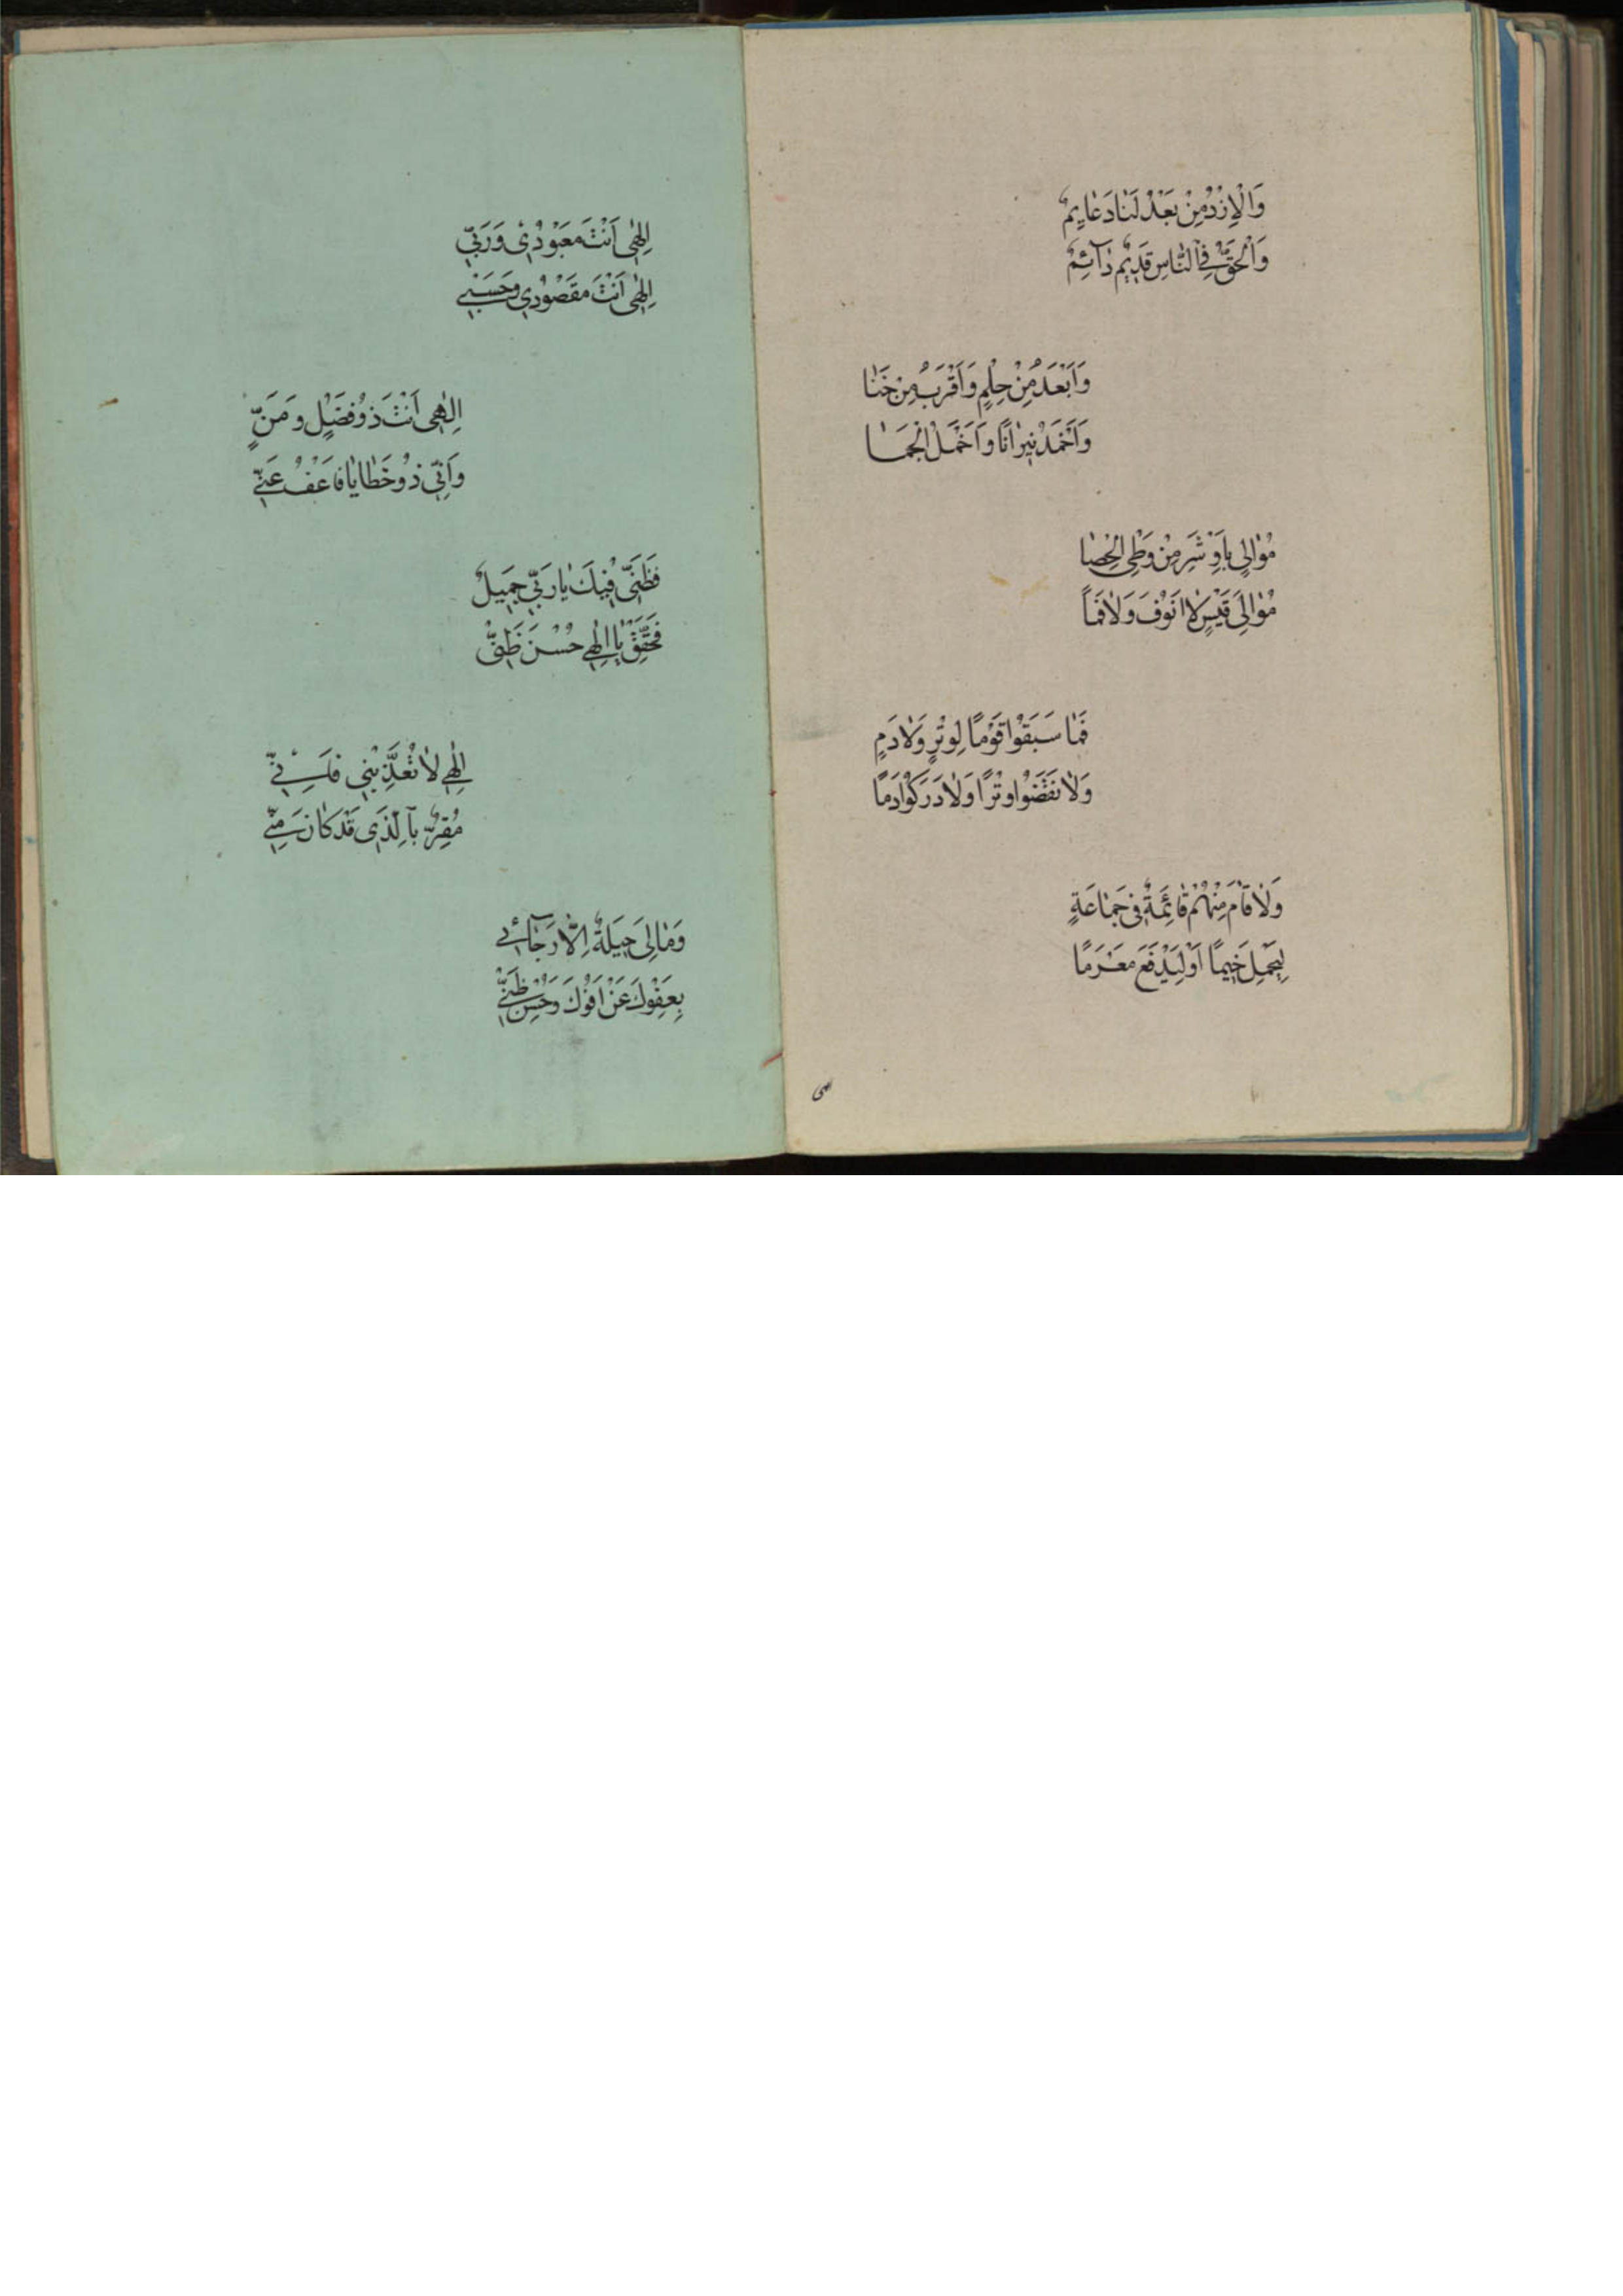 وَالْاَزْدُ مِنْ بَعْدُ لَنَا دَعَايِمُ
وَالْحَقُّ فِي النَّاسِ قَدِيمٌ دَآئِمٌ
وَاَبْعَدُ مِنْ حِلْمٍ وَاَقْرَبُ مِنْ خَنَا
وَاَخْمَدُ نِيرَانًا وَاَخْمَلُ اَنْجُمَا
مَوَالِي
مَوَالِيَ قَيْسٍ لَا اَنُوفَ وَلَا فَمًا
فَمَا سَبَقُوا قَوْمًا لِوِتْرٍ وَلَا دَمٍ
وَلَا نَقَضُوا وِتْرًا وَلَا دَرَكُوا دَمًا
وَلَا قَامَ مِنْهُمْ قَائِمَةٌ فِي جَمَاعَةٍ
لِيَحْمِلَ خَيمًا اَوْ لِيَدْفَعَ مَغْرَمًا
اِلٰهِي اَنْتَ مَعْبُودِي وَرَبِّي
اِلٰهِي اَنْتَ مَقْصُودِي وَحَسْبِي
اِلٰهِي اَنْتَ ذُو فَضْلٍ وَمَنٍّ
وَاِنِّي ذُو خَطَايَا فَاعْفُ عَنِّي
فَظَنِّي فِيكَ يَا رَبِّي جَمِيلٌ
فَحَقِّقْ يَا اِلٰهِي حُسْنَ ظَنِّي
اِلٰهِي لَا تُعَذِّبْنِي فَاِنِّي
مُقِرٌّ بِالَّذِي قَدْ كَانَ مِنِّي
وَمَالِي حِيلَةٌ اِلَّا رَجَائِي
بِعَفْوِكَ عَنْ وَحُسْنِ ظَنِّي